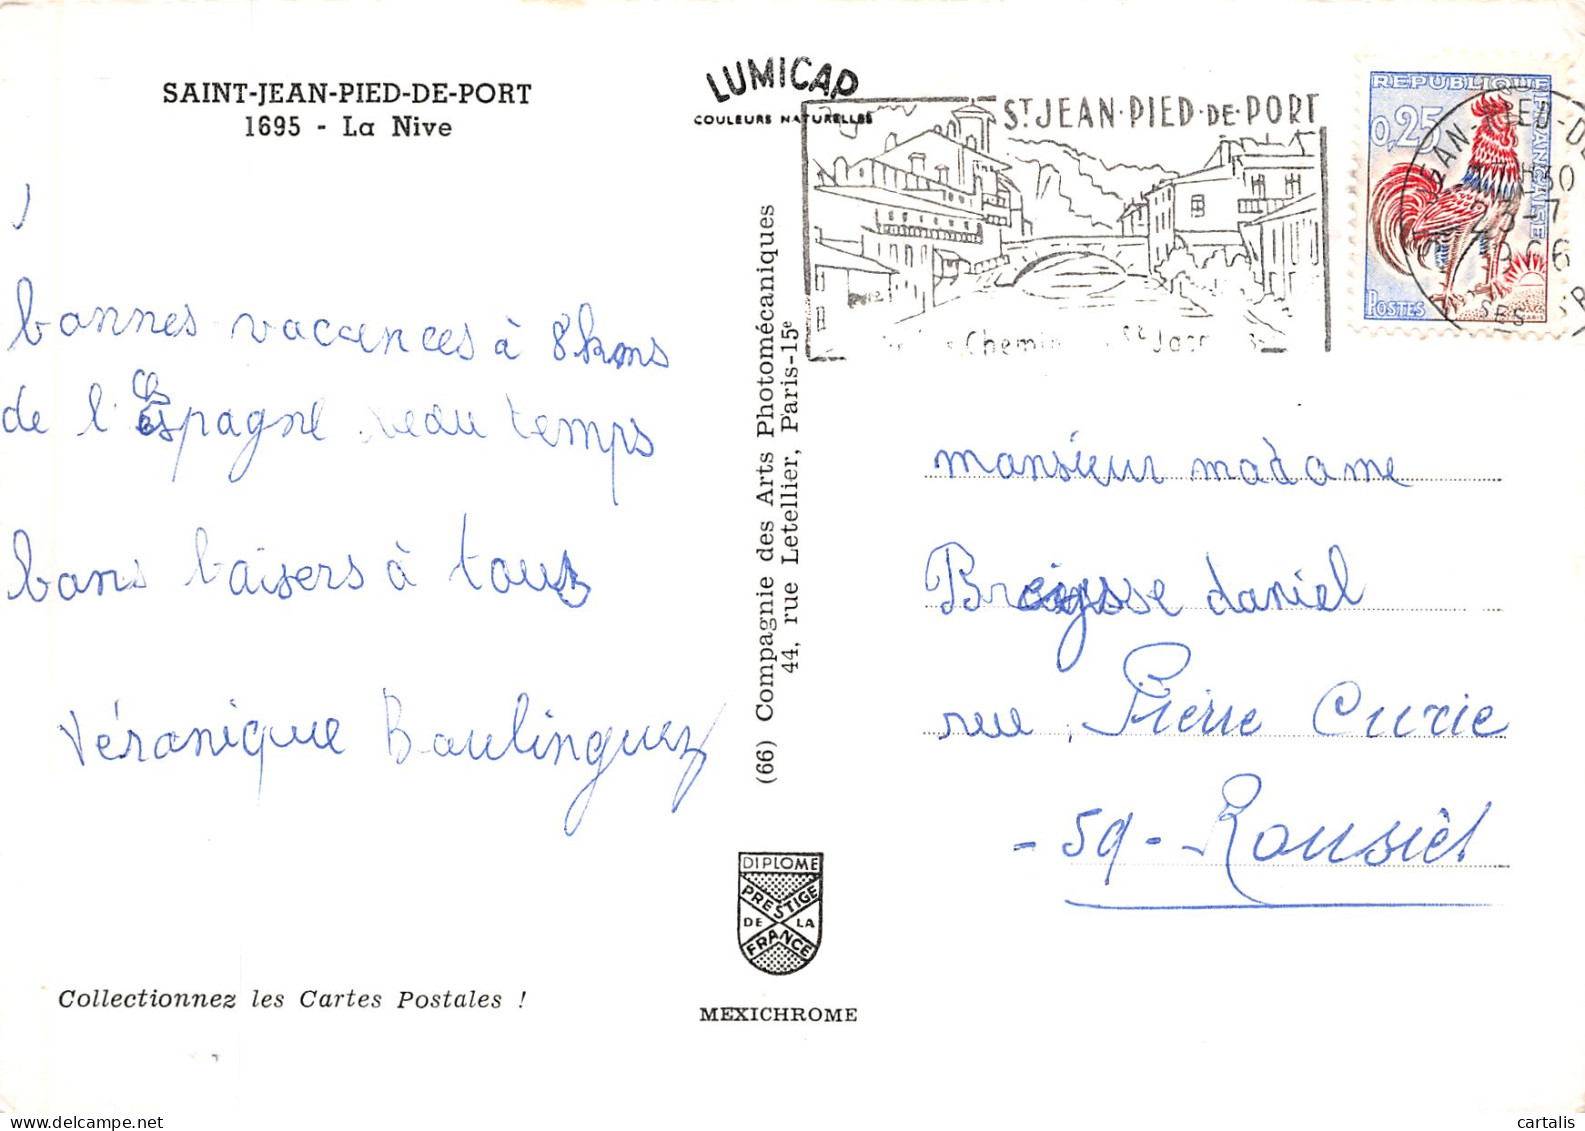 SAINT-JEAN-PIED-DE-PORT
1695 - La Nive
LUMICAP
COULEURS NATURELLES
ST JEAN · PIED · DE · PORT
Chemin St Jacq
REPUBLIQUE FRANCAISE
0,25
POSTES
bonnes vacances à 8 kms
de l'Espagne beau temps
bons baisers à tous
Véronique Boulinguez
(66) Compagnie des Arts Photomécaniques
44, rue Letellier, Paris-15e
monsieur madame
daniel
rue Pierre Curie
- 59 - Rousiès
DIPLOME
PRESTIGE
DE LA
FRANCE
Collectionnez les Cartes Postales !
MEXICHROME
cartalis